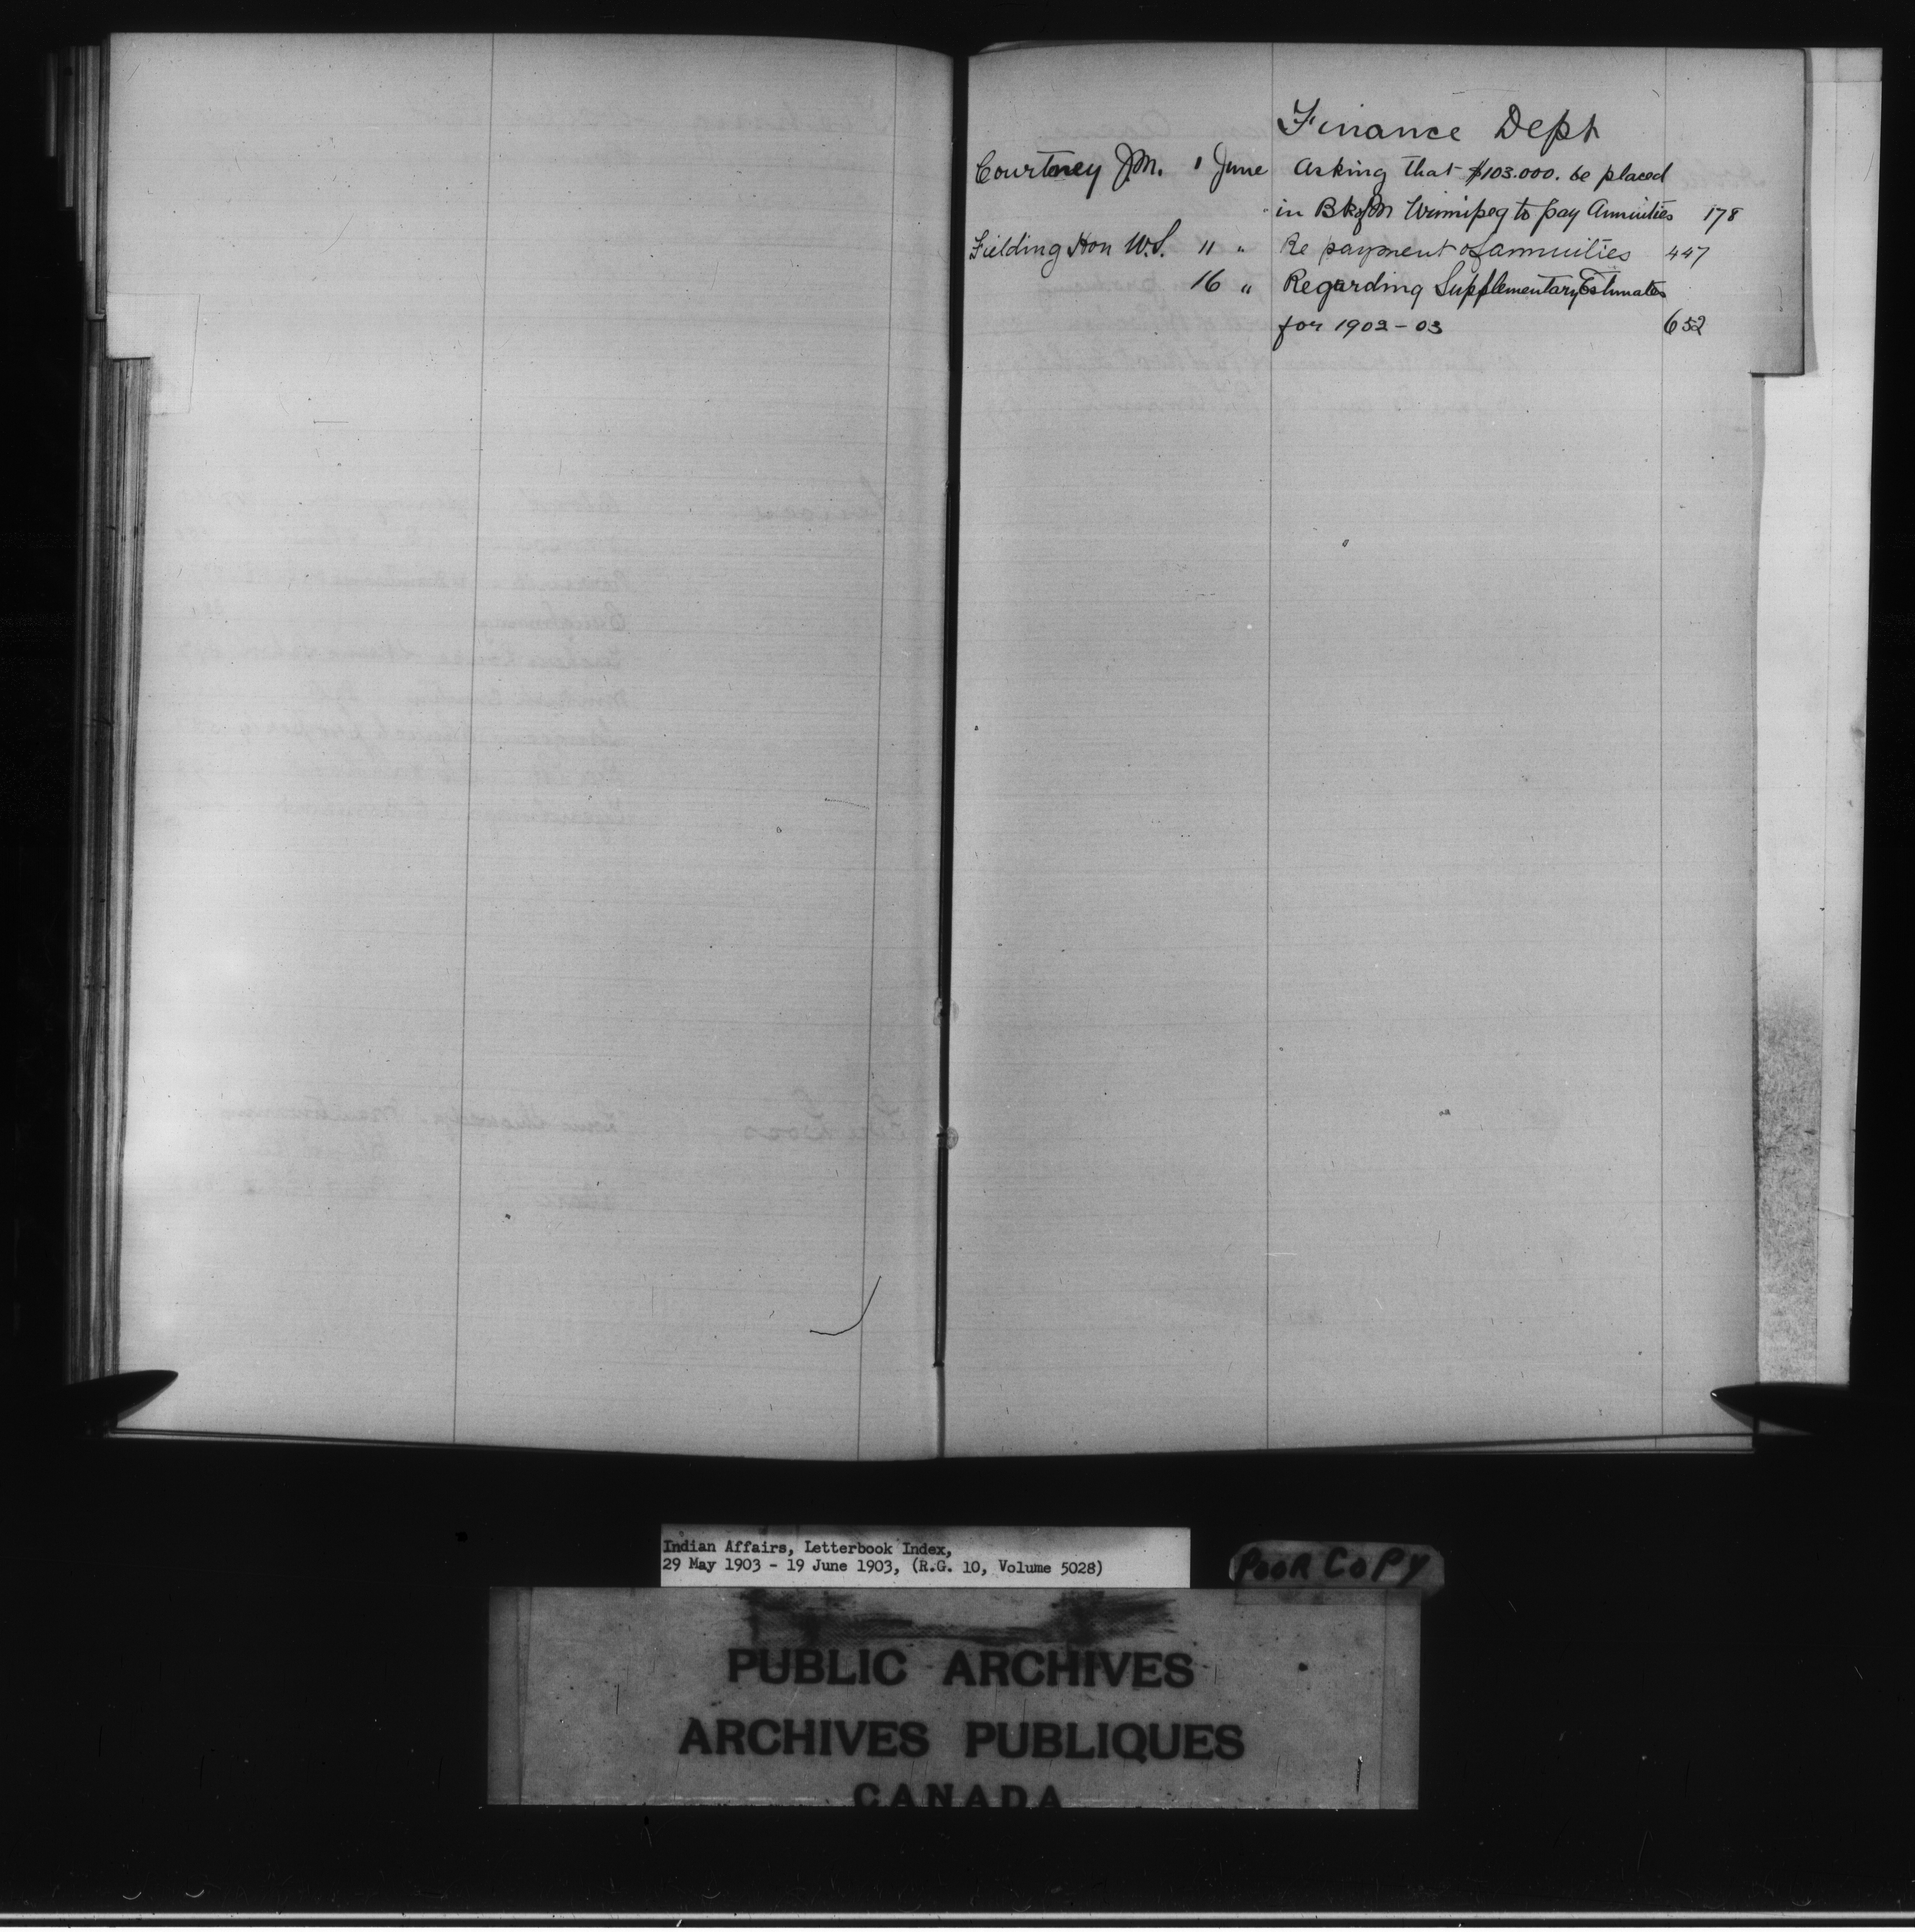 Finance Dept
Courtney J.M. 1 June Asking that $103.000. be placed
in Bk of M Winnipeg to pay Annuities 178
Fielding Hon W.S. 11 " Re payment of annuities 447
16 " Regarding Supplementary Estimates
for 1902-03 652
Indian Affairs, Letterbook Index,
29 May 1903 - 19 June 1903, (R.G. 10, Volume 5028)
POOR COPY
PUBLIC ARCHIVES
ARCHIVES PUBLIQUES
CANADA